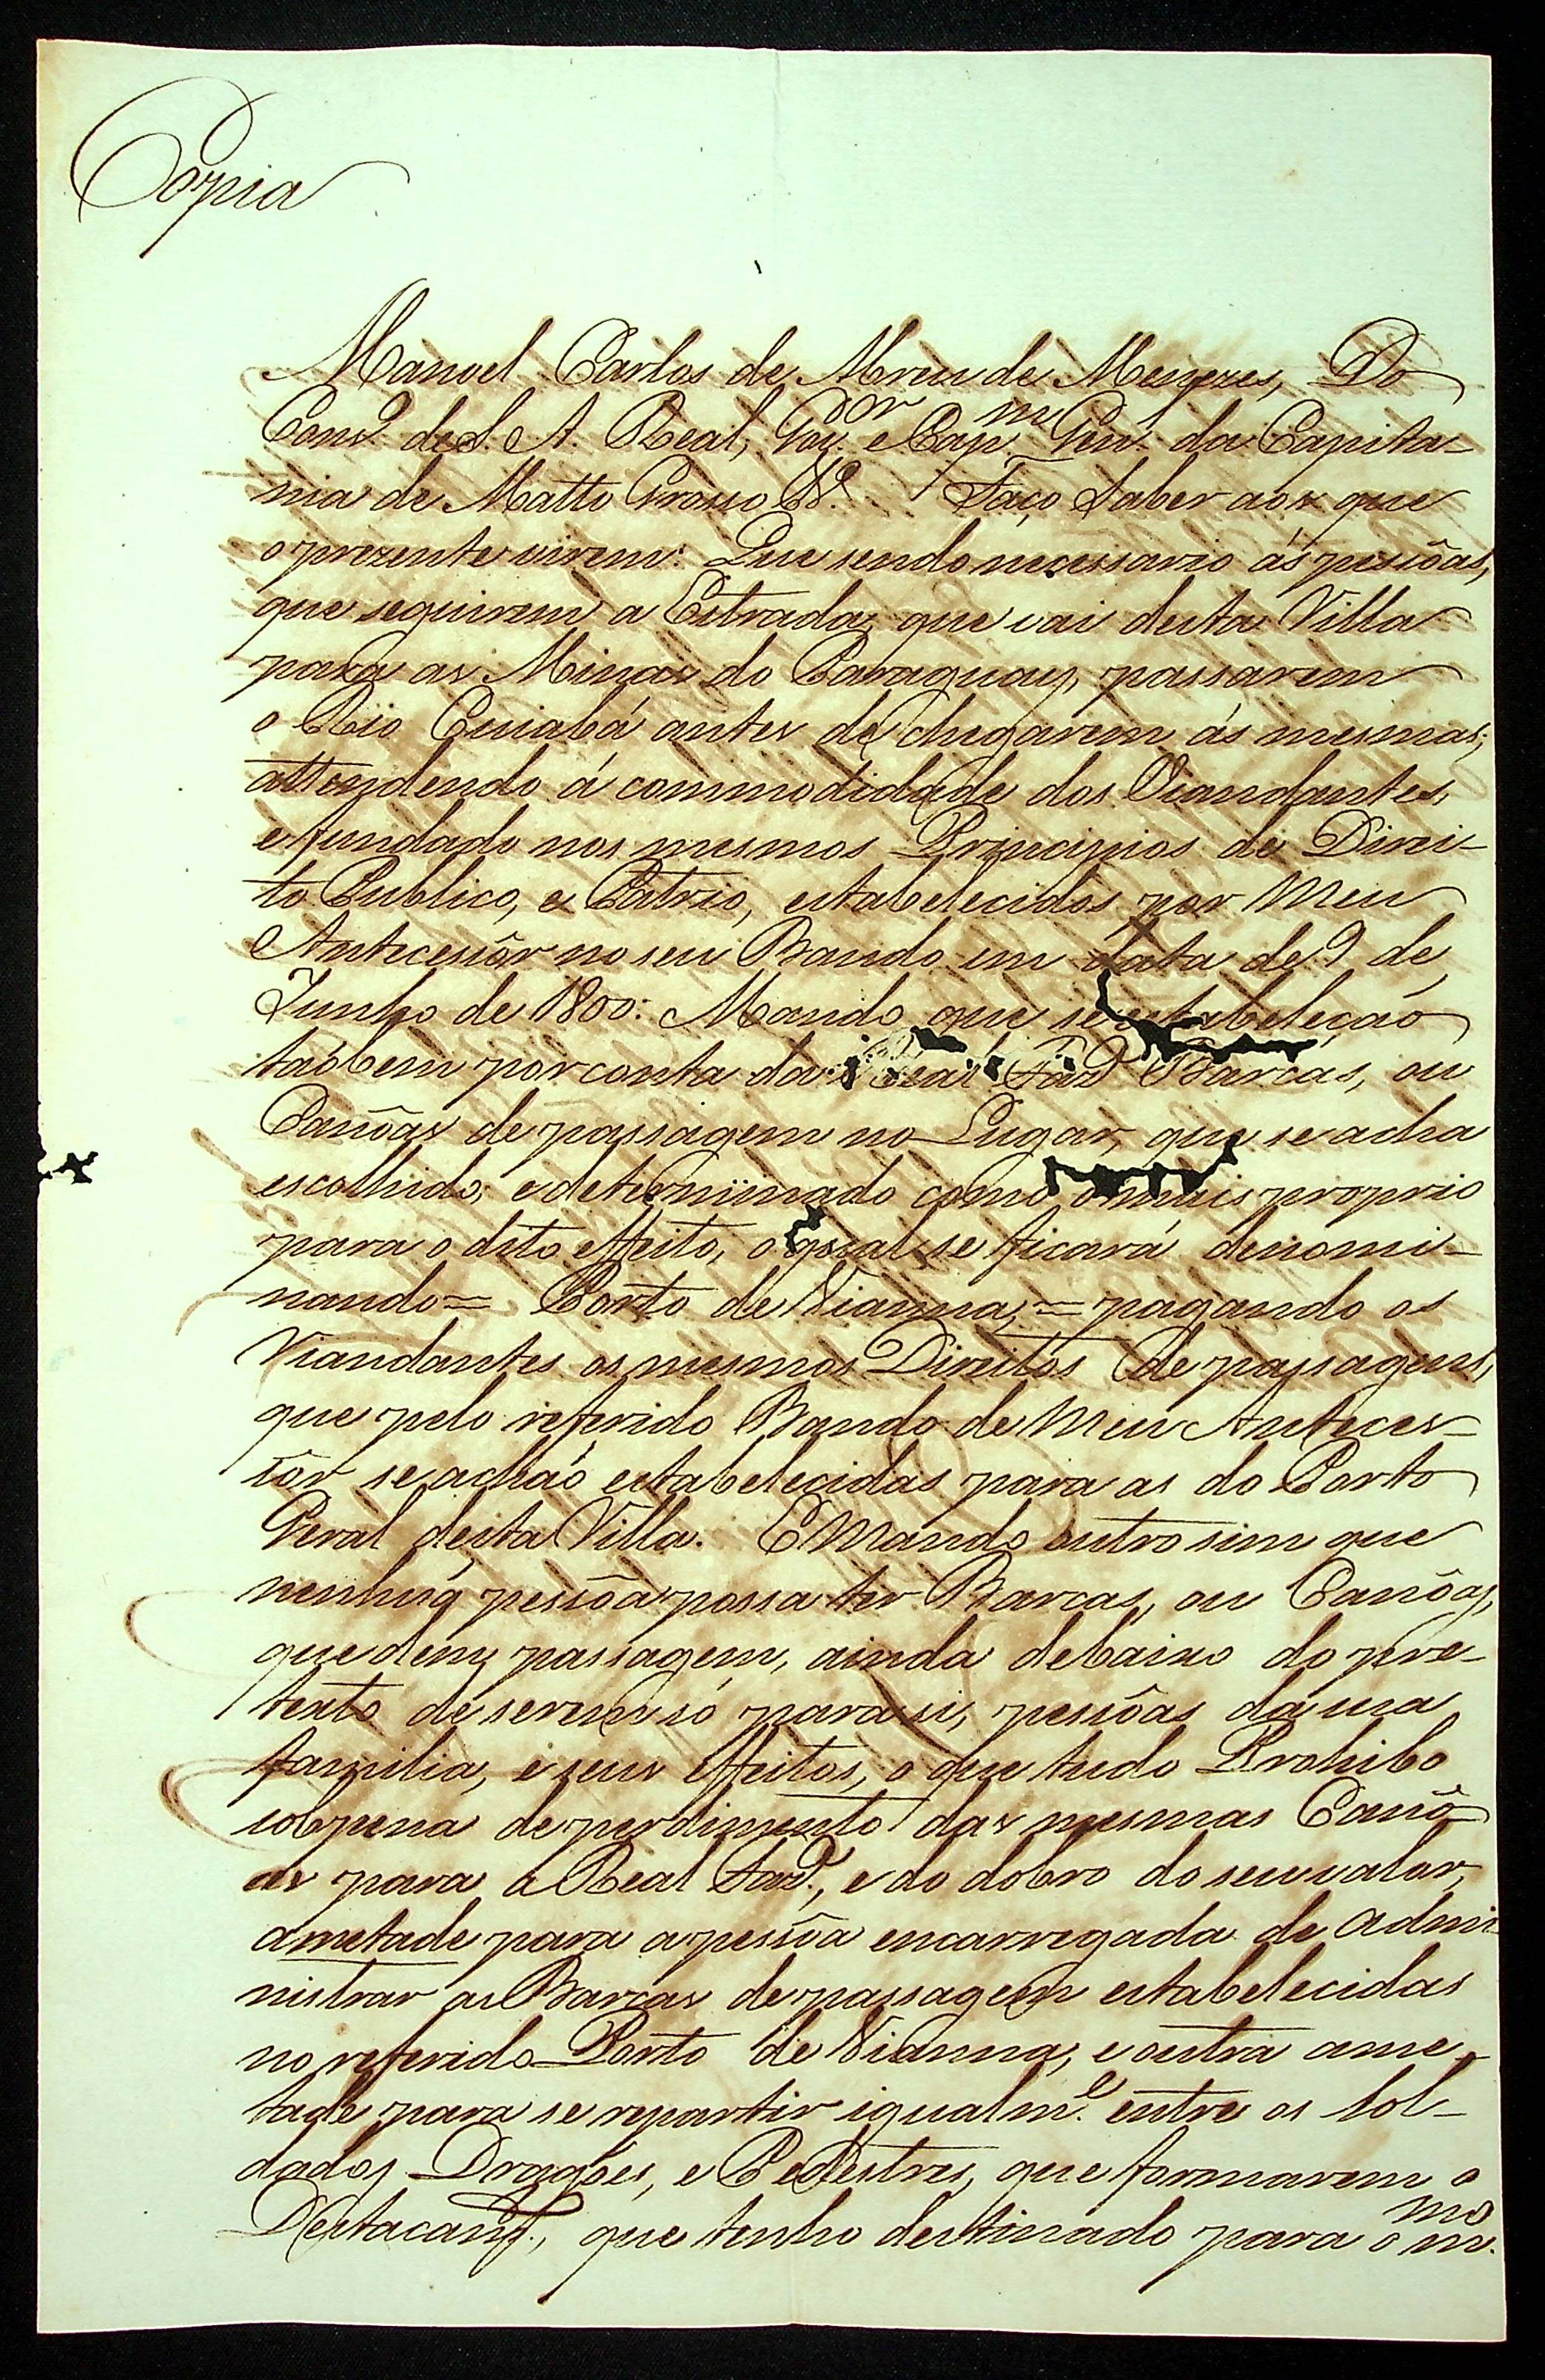 Copia
Manoel Carlos de Abreu de Menezes, Do
Cons.º de S. A. Real, Gov.or e Cap.m Gen.l da Capita-
nia de Matto Grosso &.ª Faço Saber aos que
o prezente virem: Que sendo necessario ás pessôas,
que seguirem a Estrada, que vai desta Villa
para as Minas do Paraguay, passarem
o Rio Cuiabá antes de chegarem ás mesmas;
attendendo á commodidade dos Viandantes,
e fundado nos mesmos Principios de Direi-
to Publico, e Patrio, estabelecidos por Meu
Antecessôr no seu Bando em data de 9 de
Junho de 1800: Mando que se estabeleçaõ
taõbem por conta da Real Faz.da Barcas, ou
Canôas de passagem no Lugar, que se acha
escolhido, e determinado como o mais proprio
para o dito effeito, o qual se ficará denomi-
nando = Porto de Vianna, = pagando os
Viandantes os mesmos Direitos de passagens,
que pelo referido Bando de Meu Anteces-
sôr se achaõ estabelecidas para as do Porto
Geral desta Villa. E Mando outro sim que
nenhuã pessôa possa ter Barcas, ou Canôas,
que dem passagem, ainda debaixo do pre-
texto de serem só para si, pessôas da sua
familia, e seus effeitos, o que tudo Prohibo
sobpena de perdimento das mesmas Canô-
as para a Real Faz.da, e do dobro do seu valor,
ametade para a pessôa encarregada de admi-
nistrar as Barcas de passagem estabelecidas
no referido Porto de Vianna, e outra ame-
tade para se repartir igualm.e entre os Sol-
dados Dragões, e Pedestres, que formarem o
Destacam.to, que tenho destinado para o m.mo